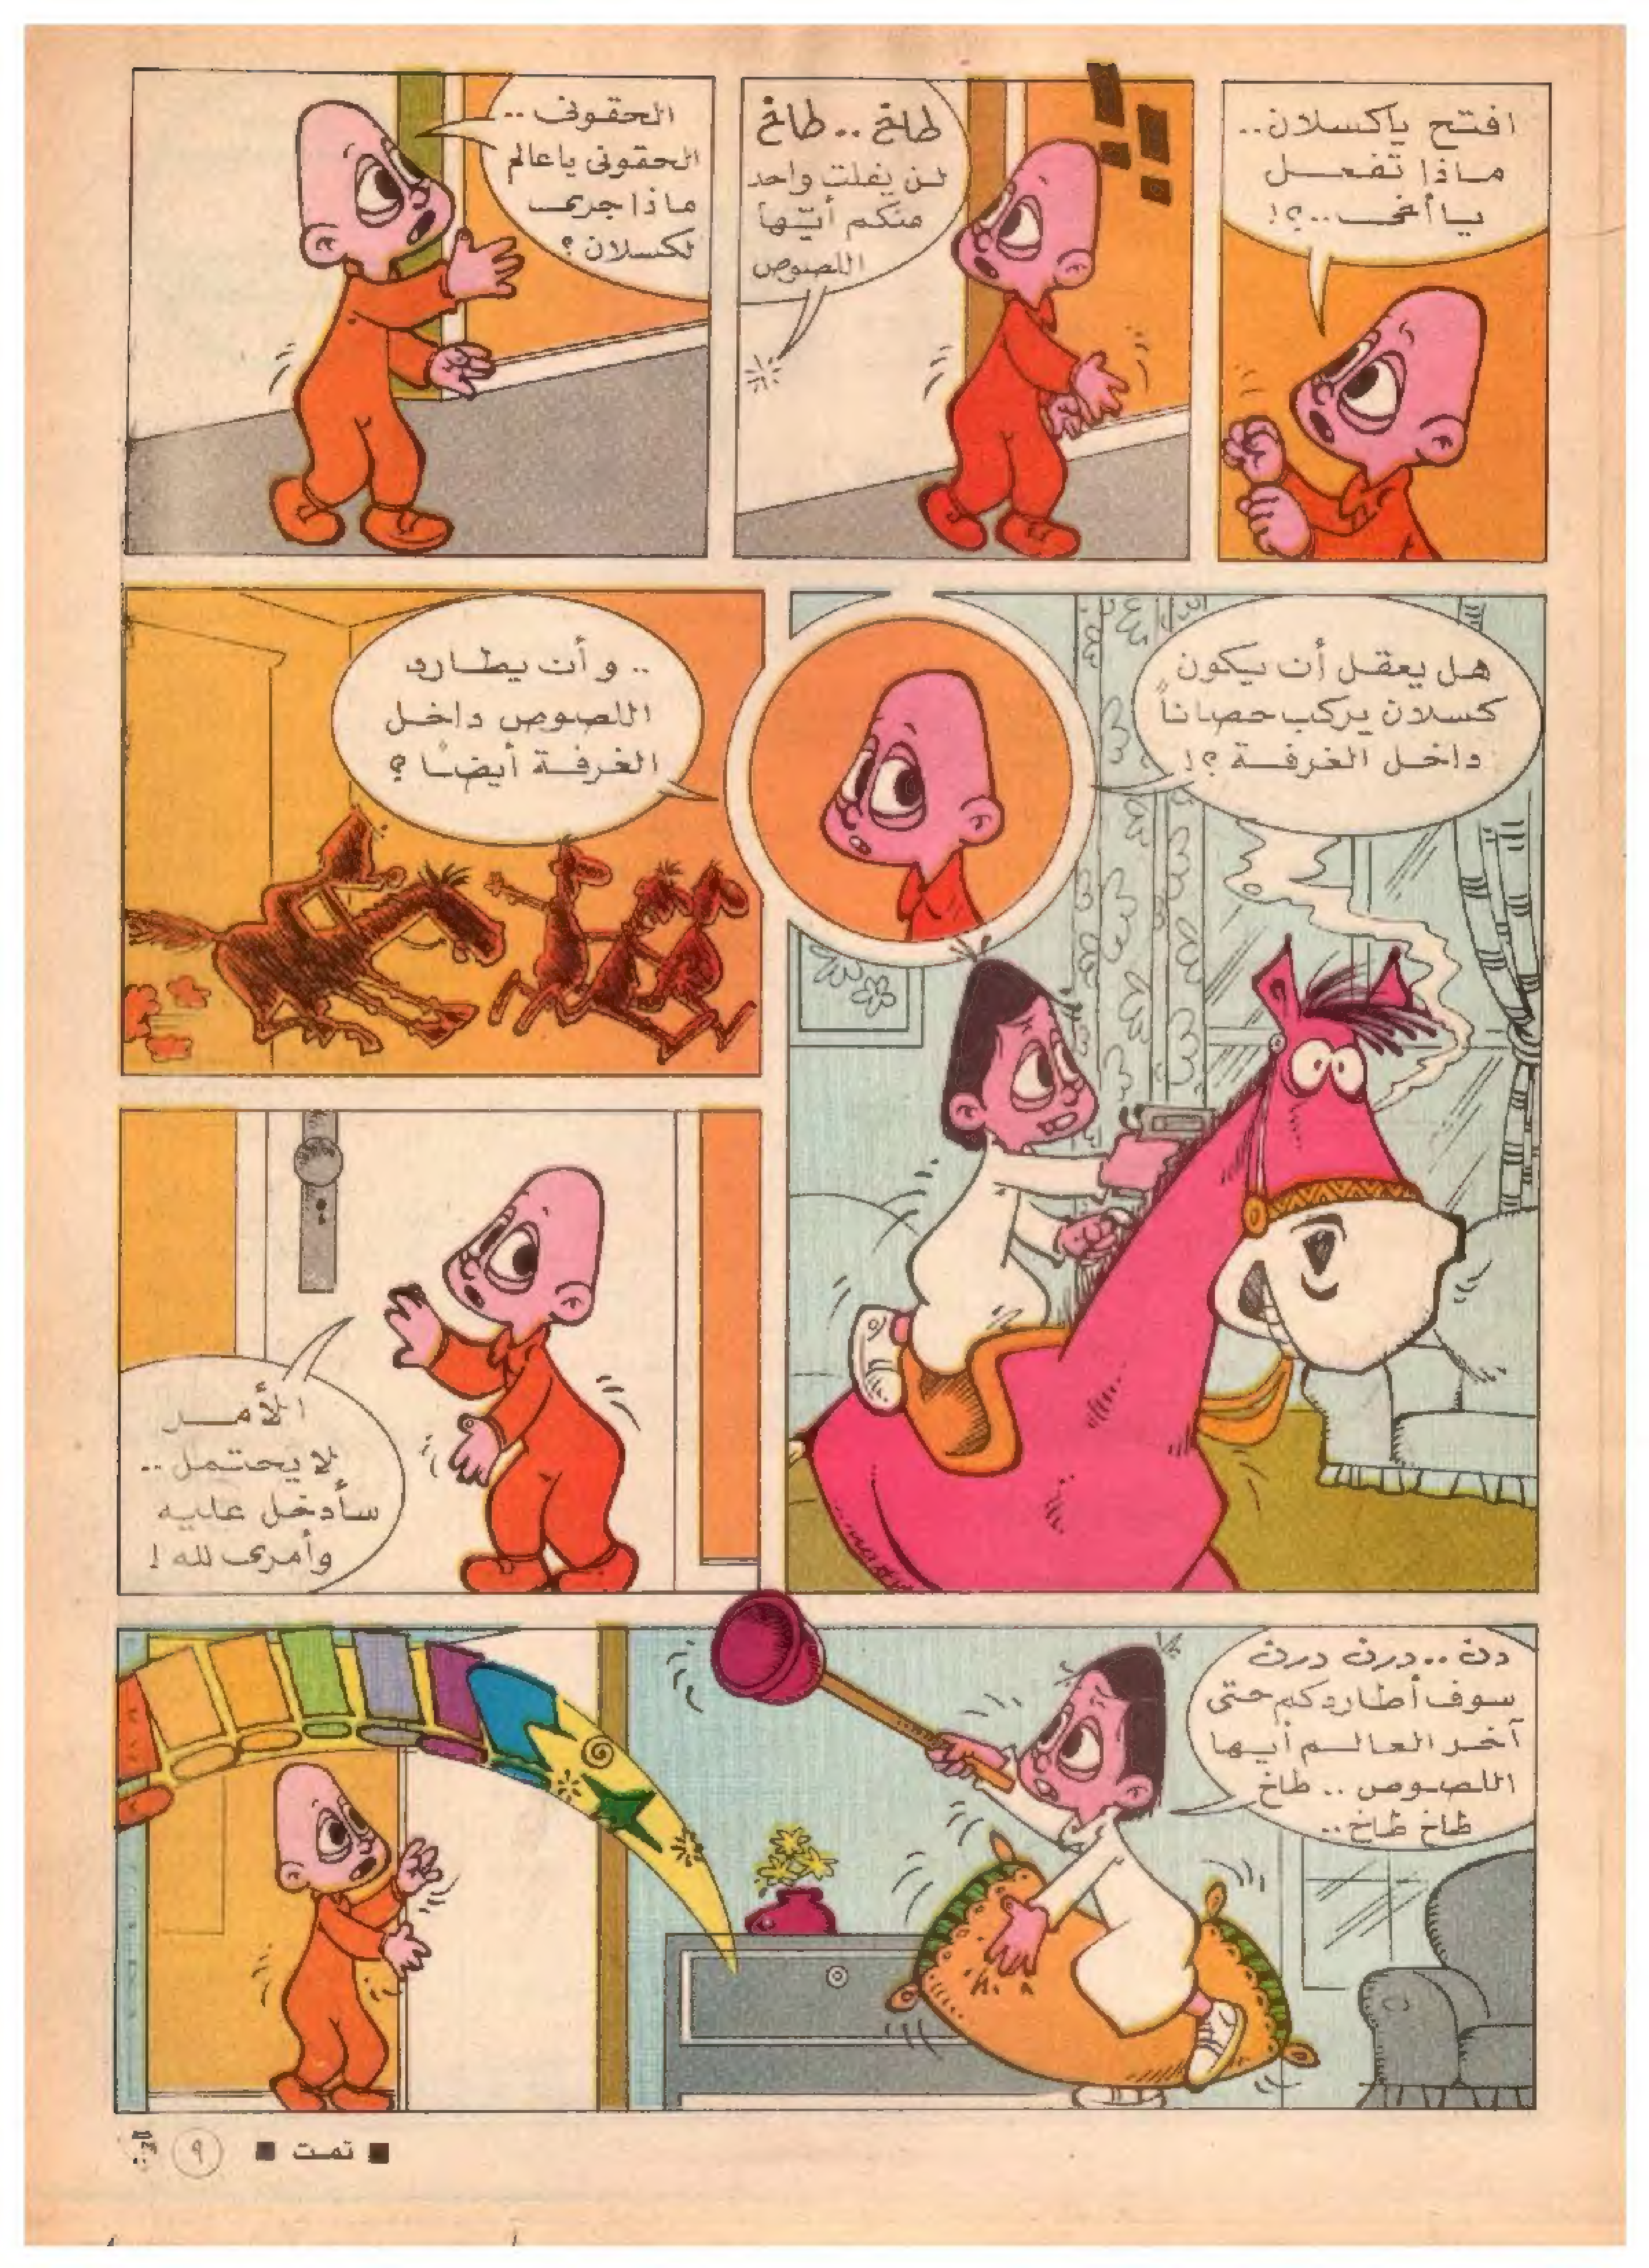 افتح ياكسلان..
ماذا تفعل
يا أخي..؟!
طاخ .. طاخ
لن يفلت واحد
منكم أيّها
اللصوص
الحقوني ..
الحقوني يا عالم
ماذا جرى
لكسلان ؟
هل يعقل أن يكون
كسلان يركب حصاناً
داخل الغرفة ؟!
.. و أن يطارد
اللصوص داخل
الغرفة أيضاً ؟
الأمر
لا يحتمل ..
سأدخل عليه
وأمري لله !
دن .. درن درن
سوف أطاردكم حتى
آخر العالم أيها
اللصوص .. طاخ
طاخ طاخ ..
■ تمت ■
٩